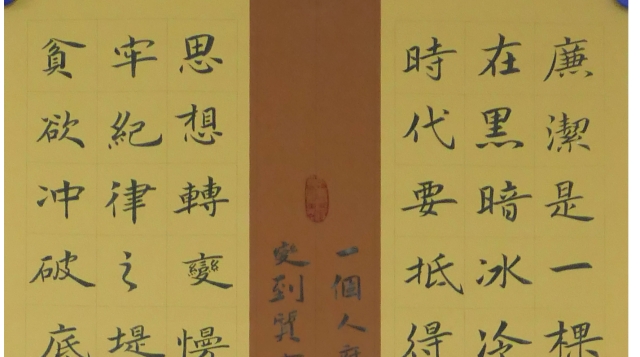 廉潔是一棵
在黑暗冰冷
時代要抵得
一個人
到
思想轉變慢
牢紀律之堤
貪欲冲破底